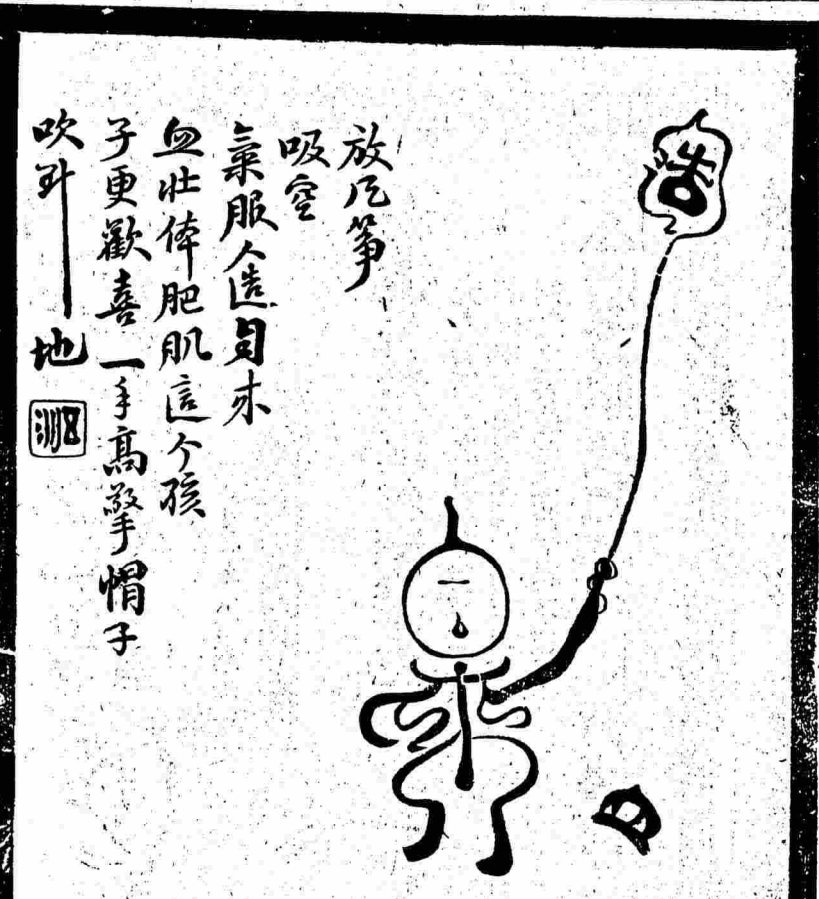 放风筝
吸空
氣服人造自来
血壮体肥肌這个孩
子更歡喜一手高擎帽子
吹到地